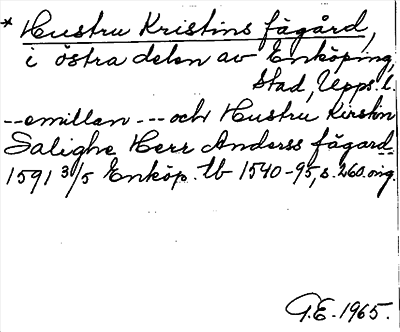 * Hustru Kristins fägård,
i östra delen av Enköping,
stad, Upps. l.
--emillan --- och Hustru Kirstin
Salighe Herr Anderss fägard--
1591 3/5 Enköp. tb 1540-95, s. 260. orig.
G.E. 1965.